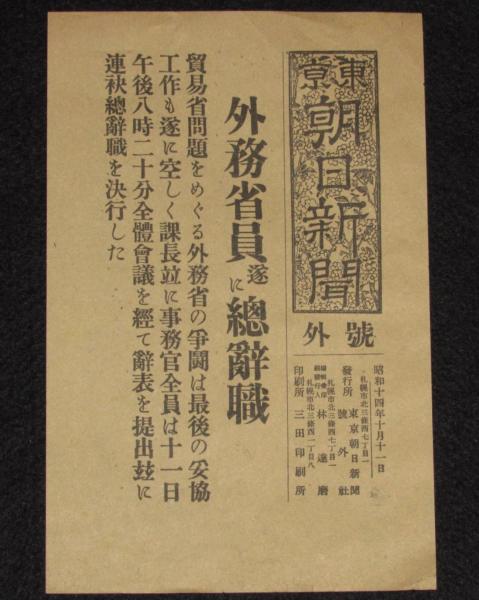 東京
朝日新聞
號外
昭和十四年十月十一日
札幌市北三條西七丁目一
發行所 東京朝日新聞
號外社
札幌市北三條西七丁目一
林達磨
札幌市北三條西一丁目八
印刷所 三田印刷所
外務省員遂に總辭職
貿易省問題をめぐる外務省の爭鬪は最後の妥協
工作も遂に空しく課長竝に事務官全員は十一日
午後八時二十分全體會議を經て辭表を提出玆に
連袂總辭職を決行した